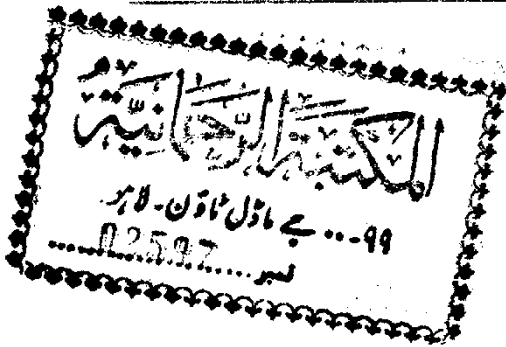 المكتبة الرحمانية
۹۹۔۔۔۔ جے ماڈل ٹاؤن۔ لاہور
نمبر ........02597........